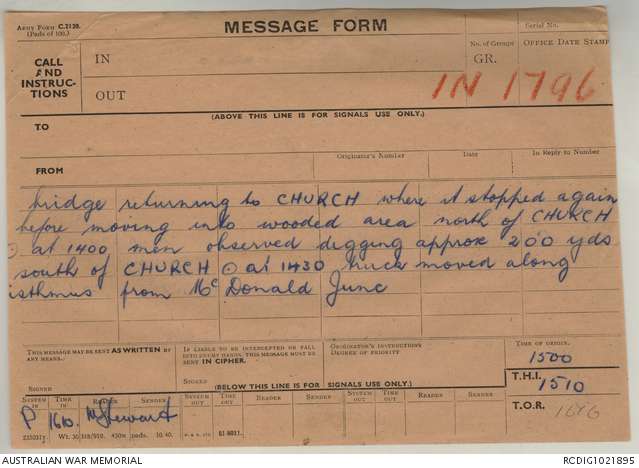 ARMY FORM C.2128.
(Pads of 100.)
MESSAGE FORM
Serial No.
CALL AND INSTRUC- TIONS
IN
No. of Groups
GR.
OFFICE DATE STAMP
OUT
IN 1796
(ABOVE THIS LINE IS FOR SIGNALS USE ONLY.)
TO
FROM
Originator's Number
Date
In Reply to Number
bridge returning to CHURCH where it stopped again
before moving into wooded area north of CHURCH
⊙ at 1400 men observed digging approx 200 yds
south of CHURCH ⊙ at 1430 truck moved along
isthmus from Mc Donald Junc
THIS MESSAGE MAY BE SENT AS WRITTEN BY ANY MEANS.
SIGNED
IF LIABLE TO BE INTERCEPTED OR FALL INTO ENEMY HANDS, THIS MESSAGE MUST BE SENT IN CIPHER.
SIGNED
ORIGINATOR'S INSTRUCTIONS
DEGREE OF PRIORITY
TIME OF ORIGIN.
1500
T.H.I.
1510
T.O.R.
(BELOW THIS LINE IS FOR SIGNALS USE ONLY.)
SYSTEM IN
TIME IN
READER
SENDER
SYSTEM OUT
TIME OUT
READER
SENDER
SYSTEM OUT
TIME OUT
READER
SENDER
P 1610. Stewart
51-9011.
AUSTRALIAN WAR MEMORIAL
RCDIG1021895